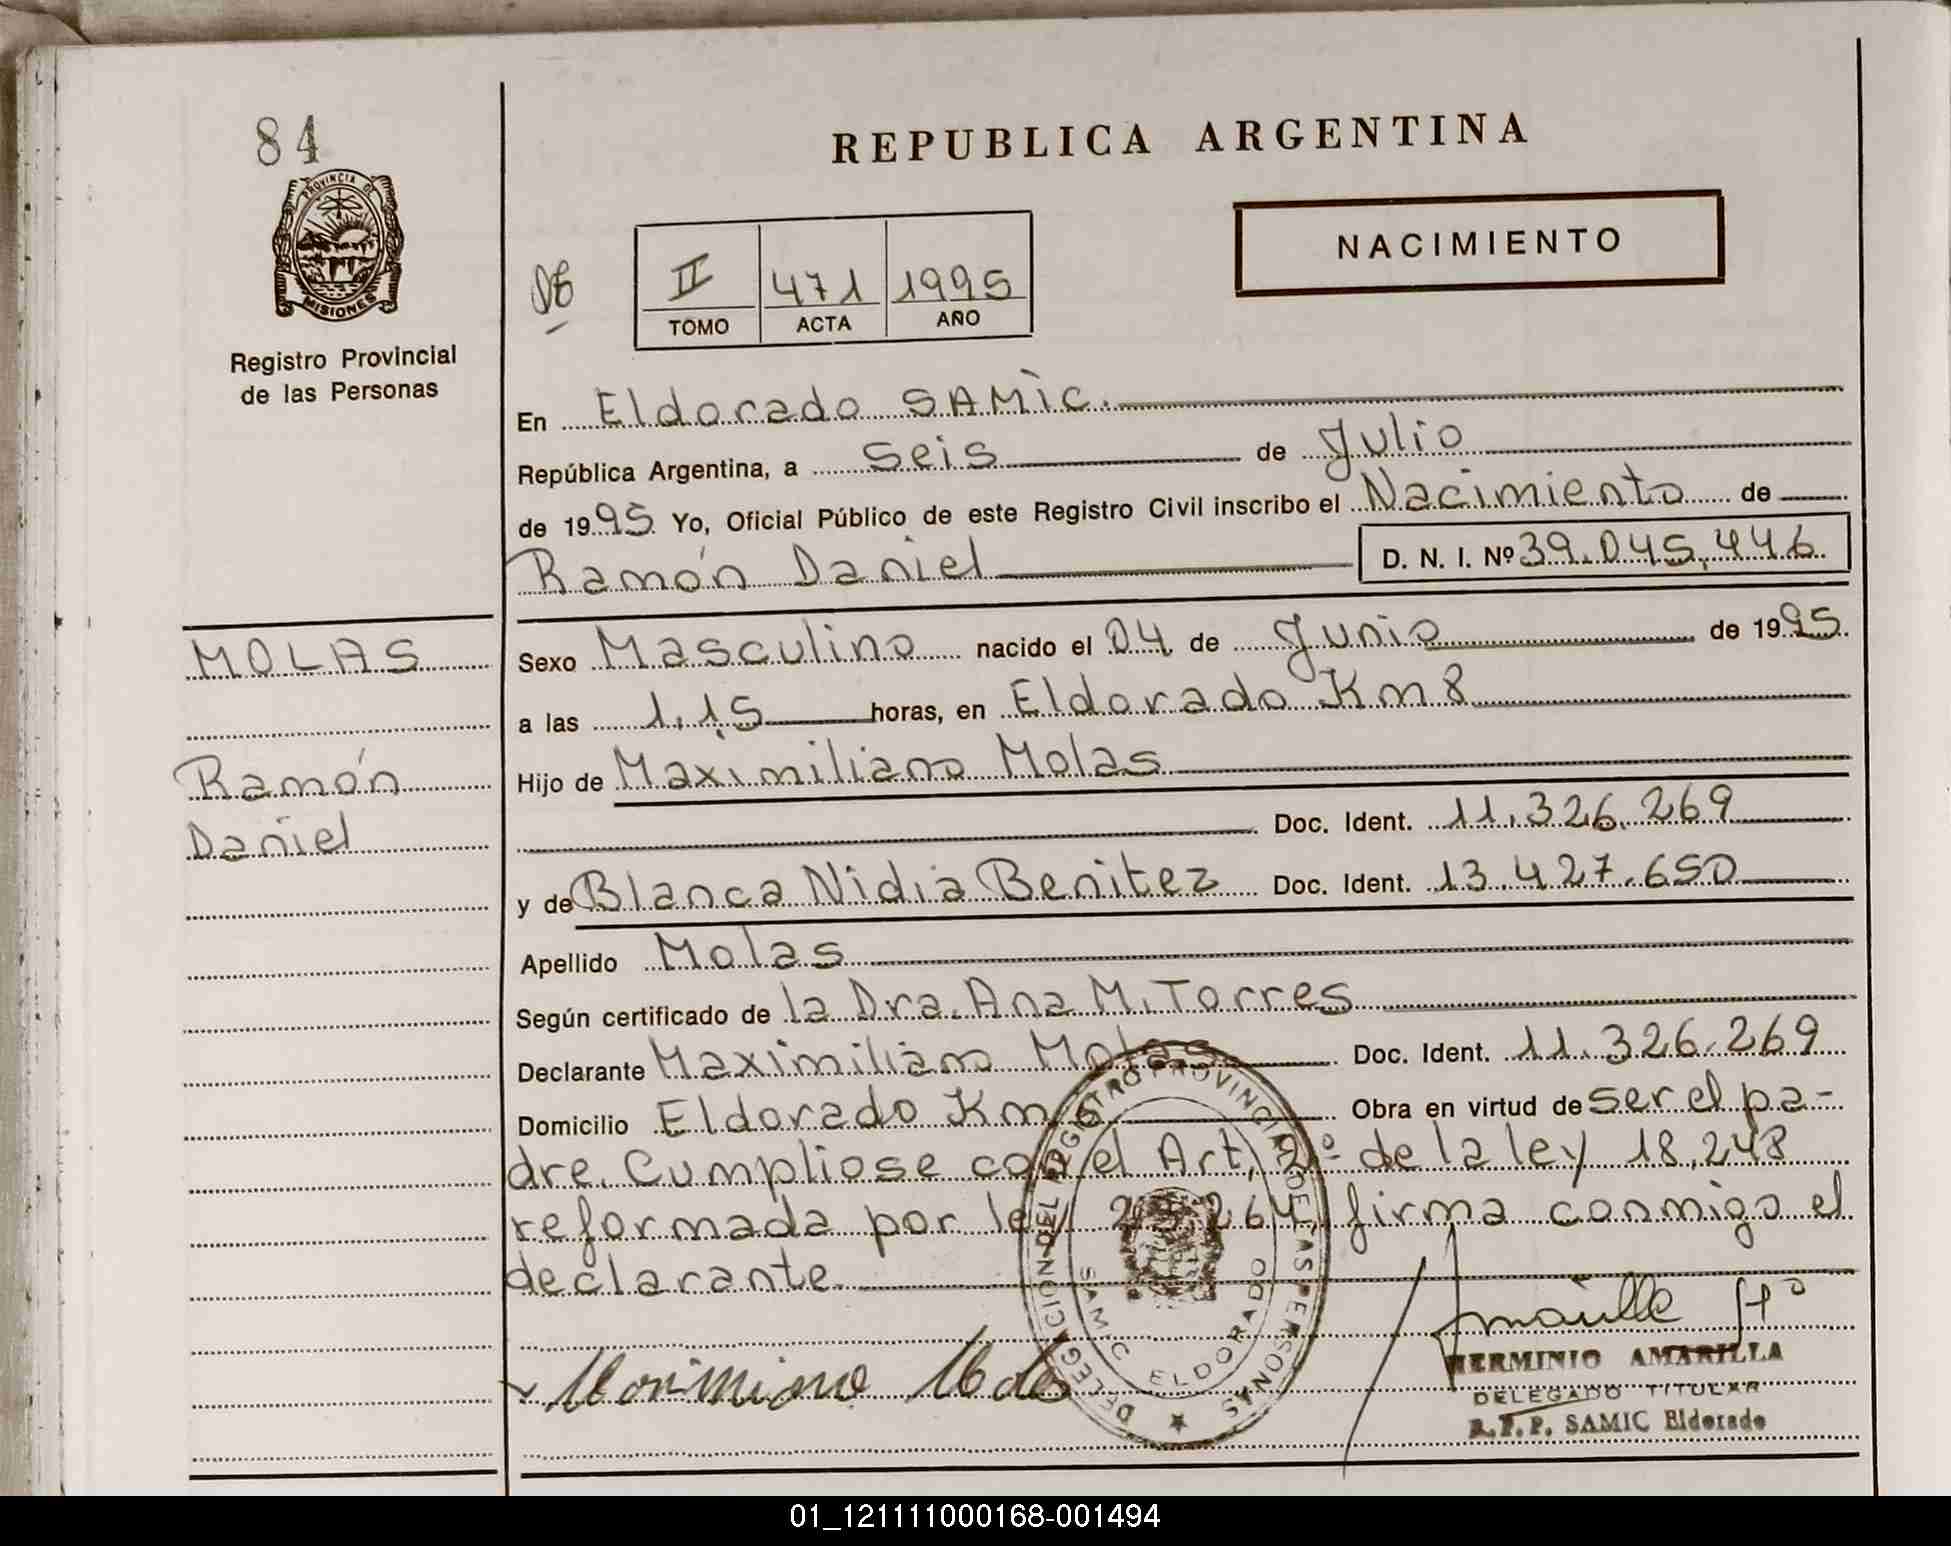 84
PROVINCIA DE
MISIONES
Registro Provincial
de las Personas
REPUBLICA ARGENTINA
NACIMIENTO
II 471 1995
TOMO ACTA AÑO
En Eldorado SAMIC.
República Argentina, a seis de Julio
de 1995 Yo, Oficial Público de este Registro Civil inscribo el Nacimiento de
Ramón Daniel D. N. I. Nº 39.045.446
MOLAS
Ramón
Daniel
Sexo Masculino nacido el 04 de Junio de 1995.
a las 1.15 horas, en Eldorado Km 8
Hijo de Maximiliano Molas
Doc. Ident. 11.326.269
y de Blanca Nidia Benitez Doc. Ident. 13.427.650
Apellido Molas
Según certificado de la Dra. Ana M. Torres
Declarante Maximiliano Molas Doc. Ident. 11.326.269
Domicilio Eldorado Km Obra en virtud de ser el pa-
dre. Cumpliose con el Art, 2º de la ley 18.248
reformada por ley 23.264 firma conmigo el
declarante.
DELEGACION DEL REGISTRO PROVINCIAL DE LAS PERSONAS
SAMIC ELDORADO
HERMINIO AMARILLA
DELEGADO TITULAR
R.P.P. SAMIC Eldorado
01_121111000168-001494